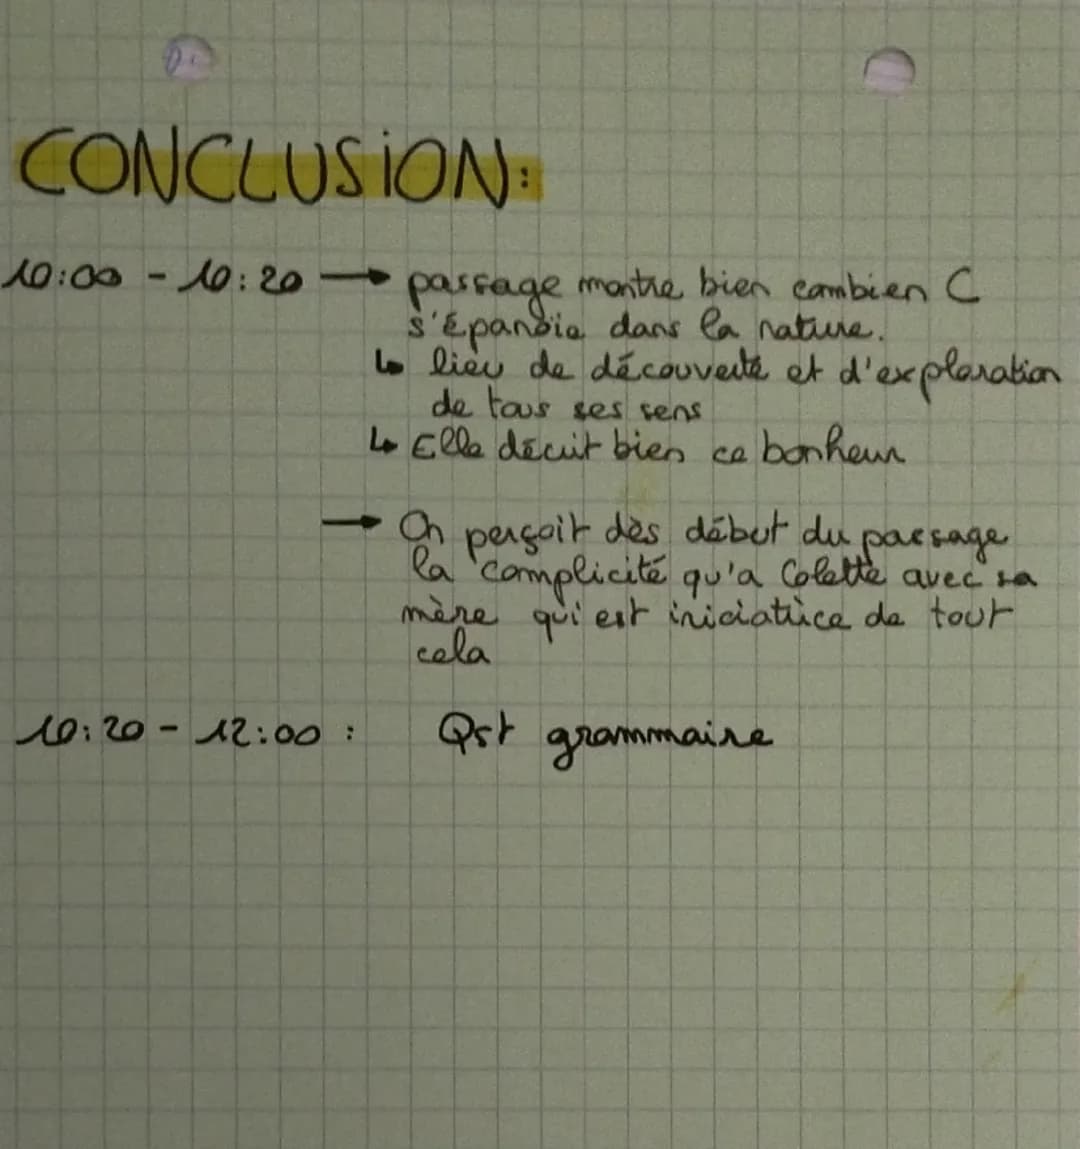 CONCLUSION:
10:00 - 10:20 → passage montre bien combien C
s'épanouie dans la nature.
↳ lieu de découverte et d'exploration
de tous ses sens
↳ Elle décrit bien ce bonheur
→ On perçoit dès début du passage
la complicité qu'a Colette avec sa
mère qui est iniciatrice de tout
cela
10:20 - 12:00 : Qst grammaire